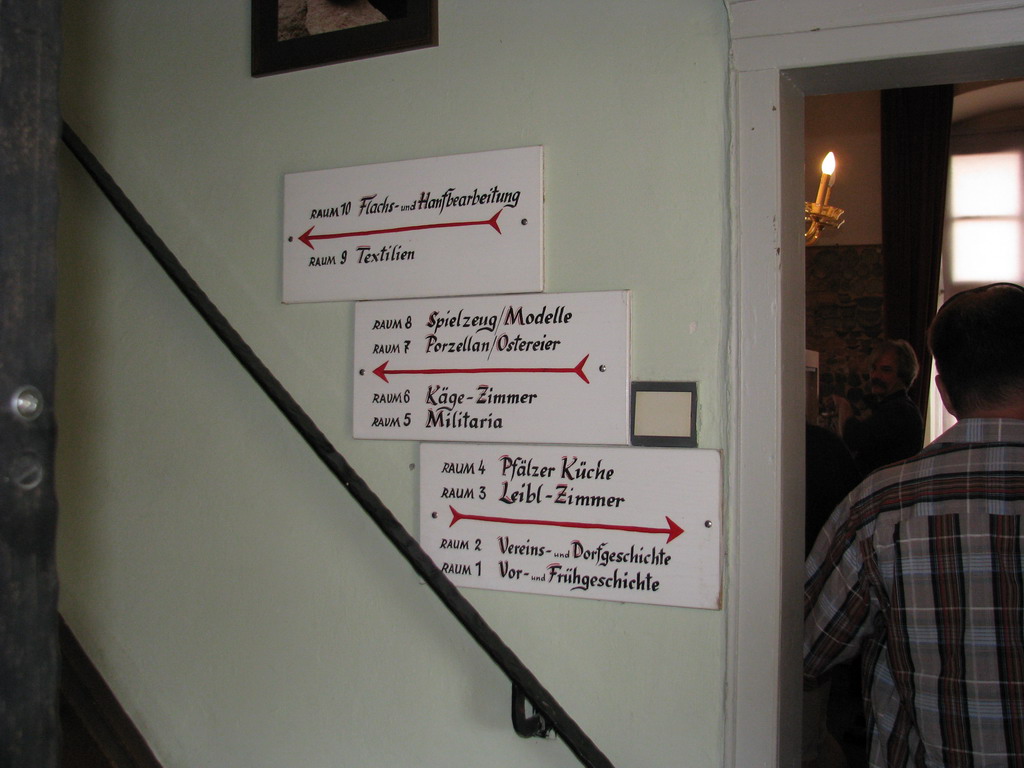 RAUM 10 Flachs- und Hanfbearbeitung
RAUM 9 Textilien
RAUM 8 Spielzeug/Modelle
RAUM 7 Porzellan/Ostereier
RAUM 6 Käge-Zimmer
RAUM 5 Militaria
RAUM 4 Pfälzer Küche
RAUM 3 Leibl-Zimmer
RAUM 2 Vereins- und Dorfgeschichte
RAUM 1 Vor- und Frühgeschichte